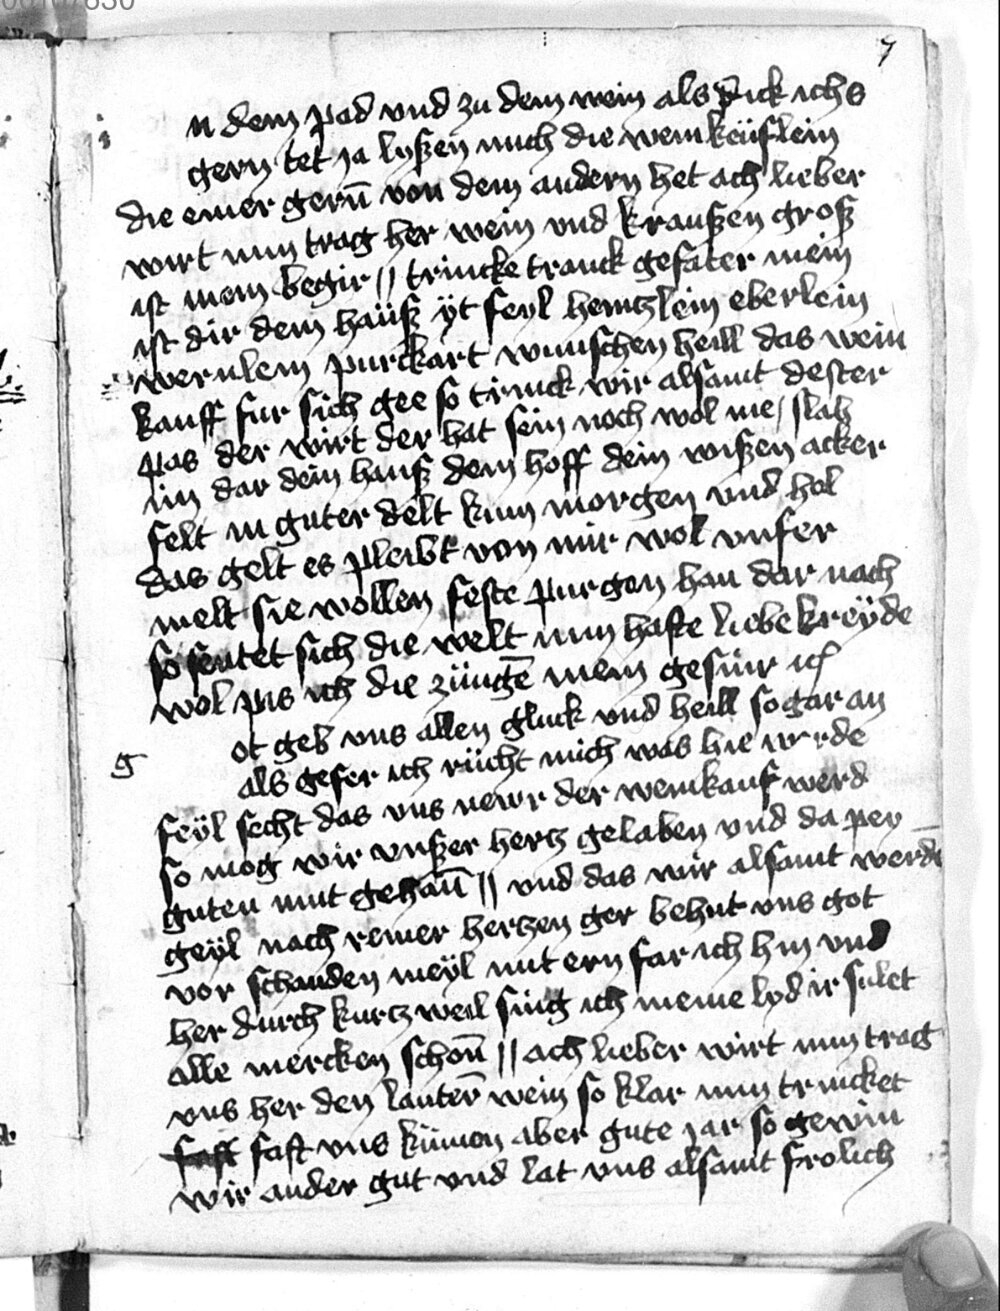 7
n dem pad vnd zu dem wein als dick ichs
gern tet ja lyßen mich die weinkeüflein
die einer gern̄ von dem andern het ach lieber
wirt nun trag her wein vnd kraußen groß
ist mein begir || trincke tranck gefater mein
ist dir dein hauß yt feyl heintzlein eberlein
wernlein purckart wunschen heill das wein
kauff fur sich gee so trinck wir alsamt dester
pas der wirt der hat sein noch wol me / slah
im dar dein hauß dein hoff dein wißen acker
felt in guter delt kum morgen vnd hol
das gelt es pleibt von mir wol vnser
melt sie wollen feste purgen han dar nach
so sentet sich die welt nun hafte liebe kreyde
wol pis ich die züngē mein gesinr ich
g
ot geb vns allen gluck vnd heill so gar an
als gefer ich rücht mich was hie werde
feyl secht das vns newr der weinkauf werd
so mog wir vnßer hertz gelaben vnd da pey
guten mut gehan̄ || vnd das wir alsamt werdē
geyl nach reiner hertzen ger behut vns got
vor schanden meyl mit ern far ich hin vnd
her durch kurtzweil sing ich meine lyd ir sulet
alle mercken schon̄ || ach lieber wirt nun trag
vns her den lautern̄ wein so klar nun trincket
fast vns kümen aber gute jar so gewin
wir ander gut vnd lat vns alsamt frolich